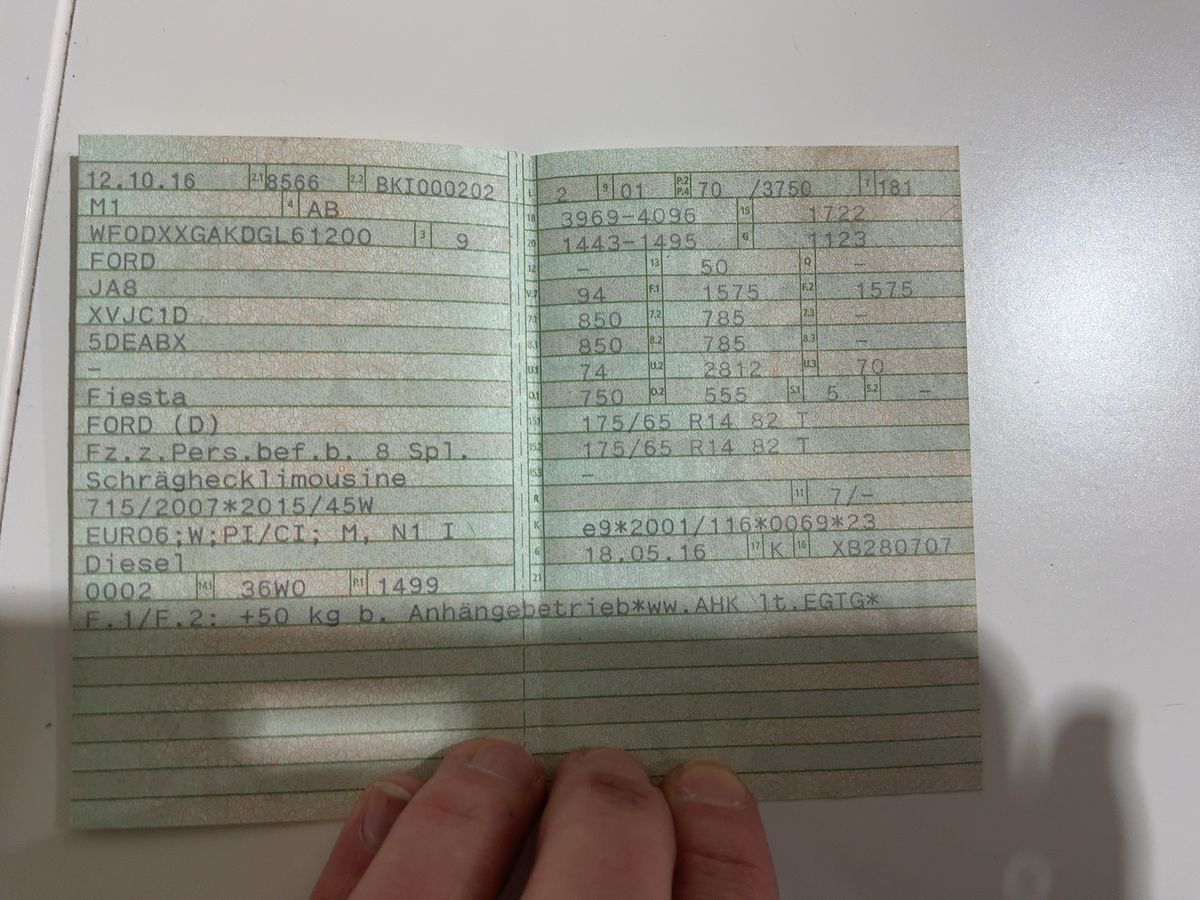 12.10.16 2.1 8566 2.2 BKI000202
M1 4 AB
WF0DXXGAKDGL61200 3 9
FORD
JA8
XVJC1D
5DEABX
–
Fiesta
FORD (D)
Fz.z.Pers.bef.b. 8 Spl.
Schräghecklimousine
715/2007*2015/45W
EURO6;W;PI/CI; M, N1 I
Diesel
0002 14.1 36W0 P.1 1499
L 2 9 01 P.2 P.4 70 /3750 T 181
18 3969-4096 19 1722
20 1443-1495 G 1123
12 – 13 50 Q –
V.7 94 F.1 1575 F.2 1575
7.1 850 7.2 785 7.3 –
8.1 850 8.2 785 8.3 –
U.1 74 U.2 2812 U.3 70
O.1 750 O.2 555 S.1 5 S.2 –
15.1 175/65 R14 82 T
15.2 175/65 R14 82 T
15.3 –
R 11 7/–
K e9*2001/116*0069*23
6 18.05.16 17 K 16 XB280707
21
F.1/F.2: +50 kg b. Anhängebetrieb*ww.AHK lt.EGTG*